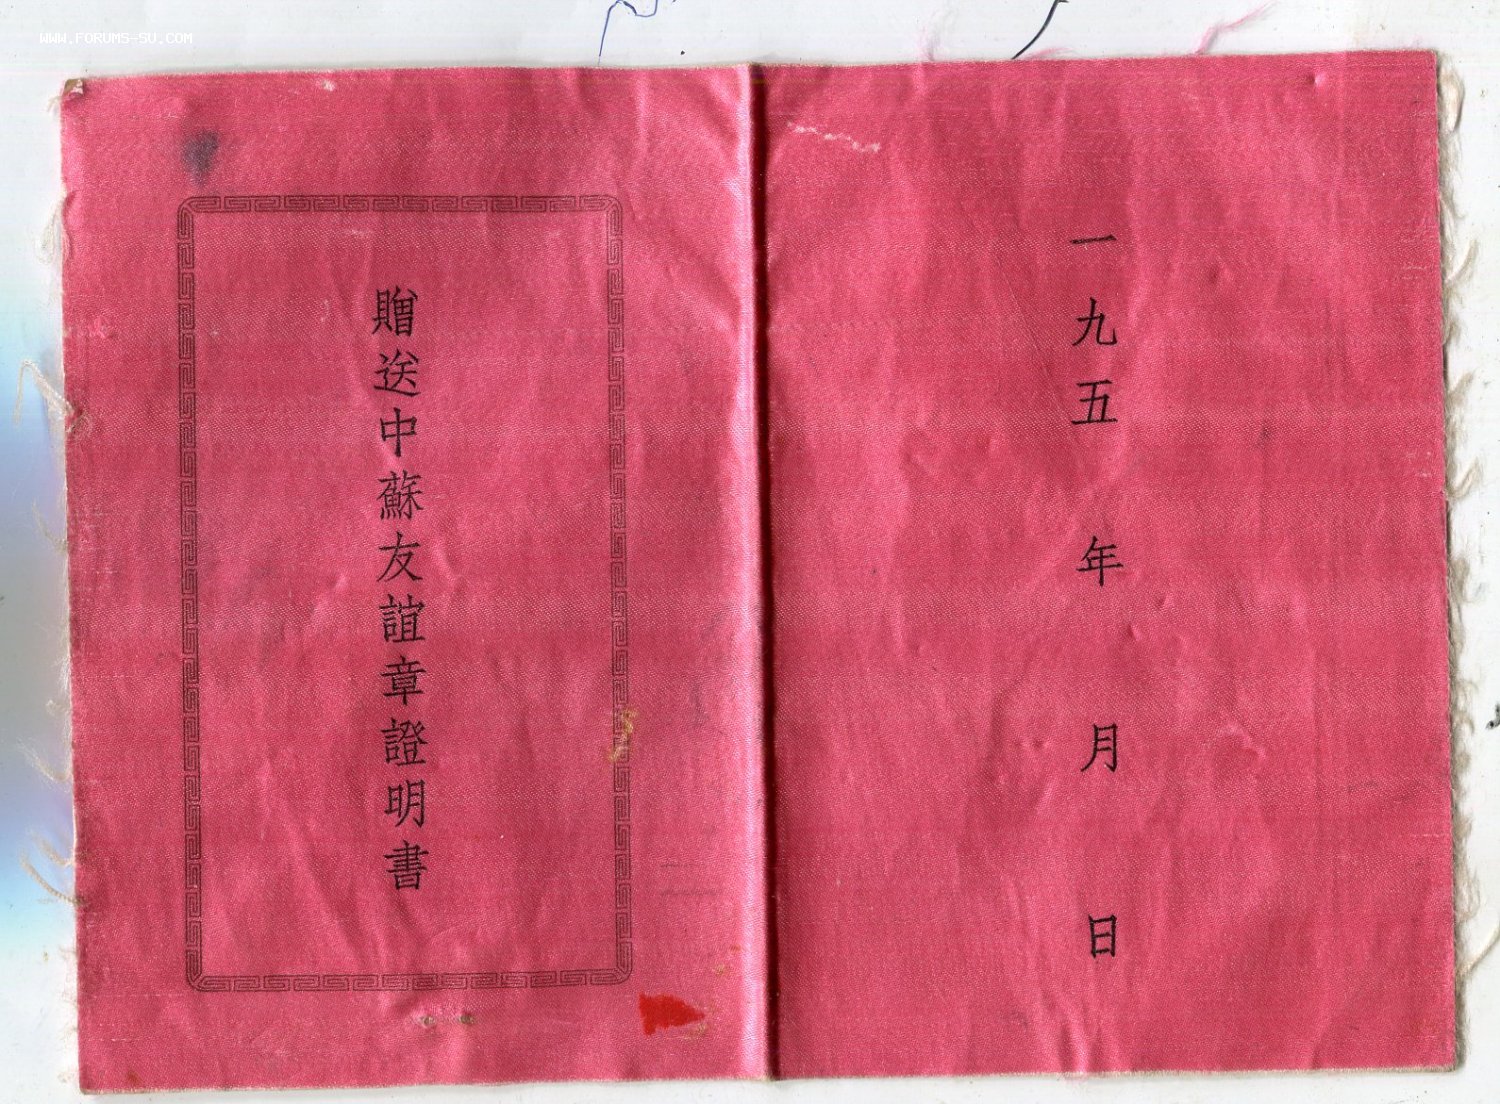 WWW.FORUMS-SU.COM
一九五　年　月　日
贈送中蘇友誼章證明書